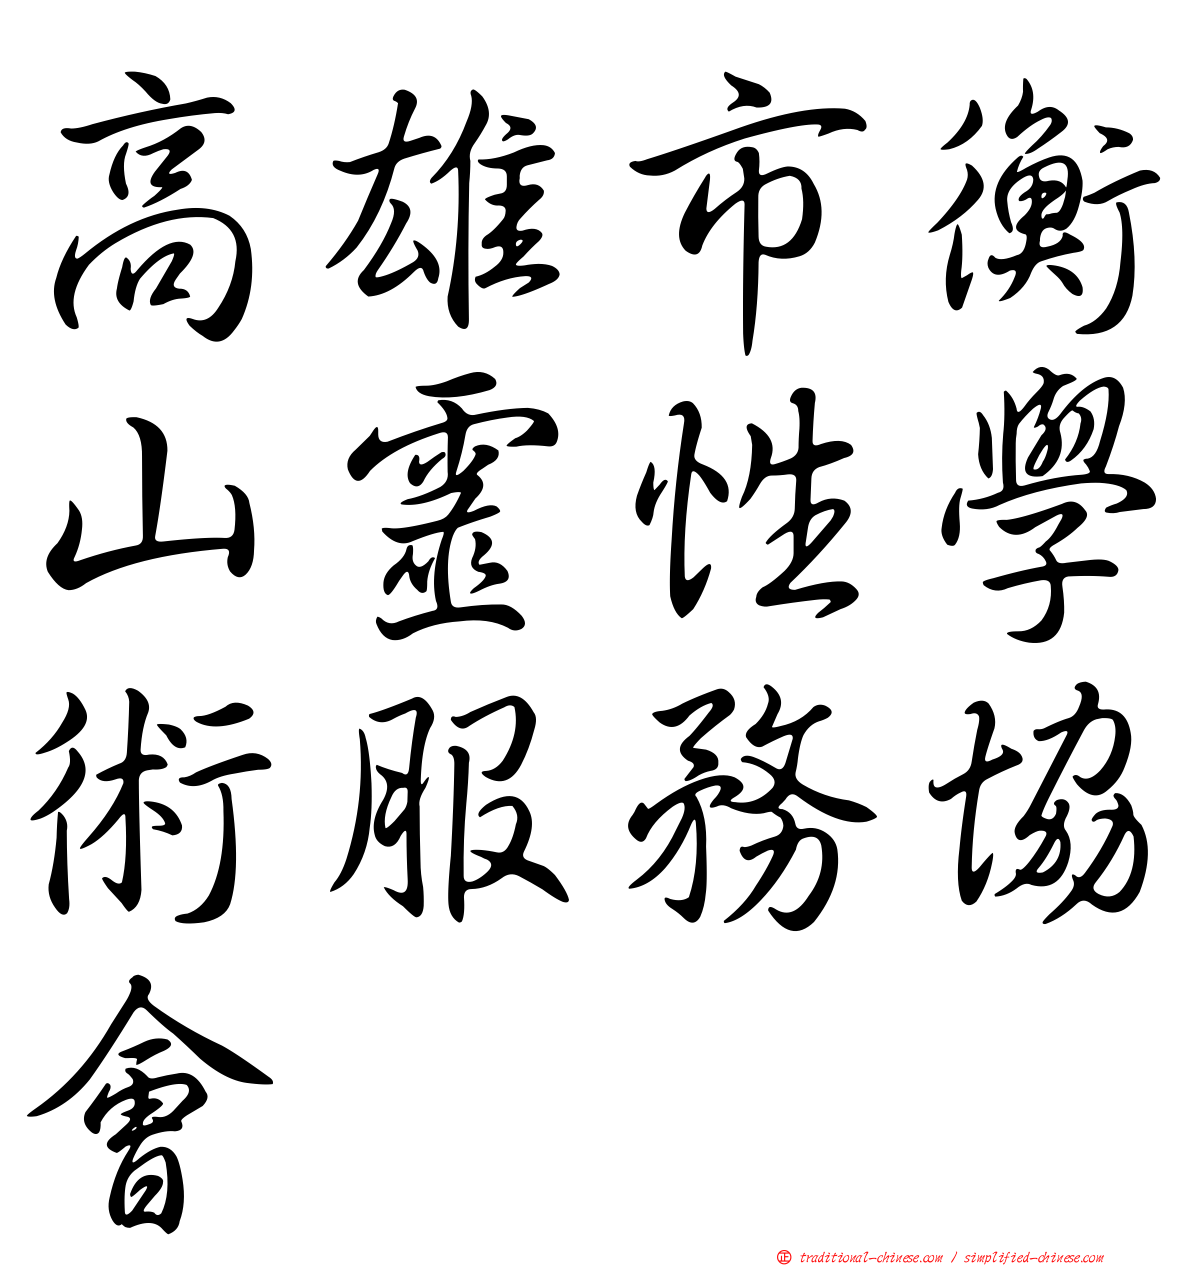 高雄市衡
山靈性學
術服務協
會
㊣ traditional-chinese.com / simplified-chinese.com